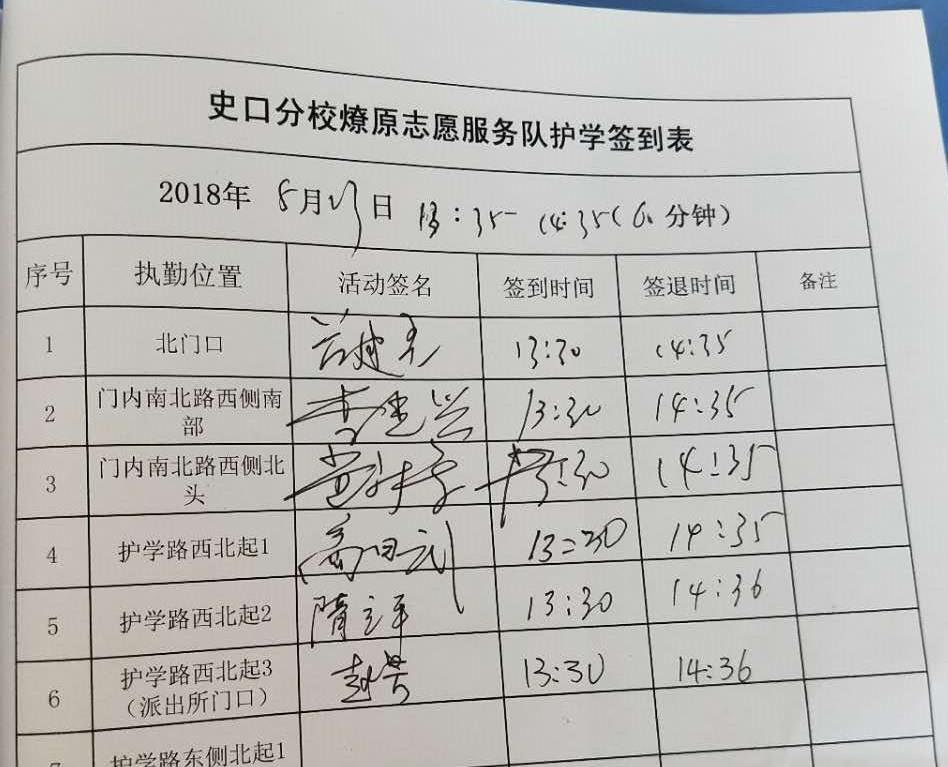 史口分校燎原志愿服务队护学签到表
2018年 5月 日 13:35- 14:35( 分钟)
序号 执勤位置 活动签名 签到时间 签退时间 备注
1 北门口 13:30 14:35
2 门内南北路西侧南部 李建兴 13:30 14:35
3 门内南北路西侧北头 13:30 14:35
4 护学路西北起1 高曰武 13:30 14:35
5 护学路西北起2 隋立军 13:30 14:36
6 护学路西北起3(派出所门口) 13:30 14:36
护学路东侧北起1